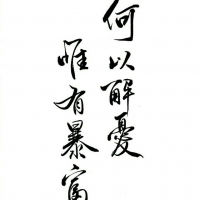 何以解憂
唯有暴富